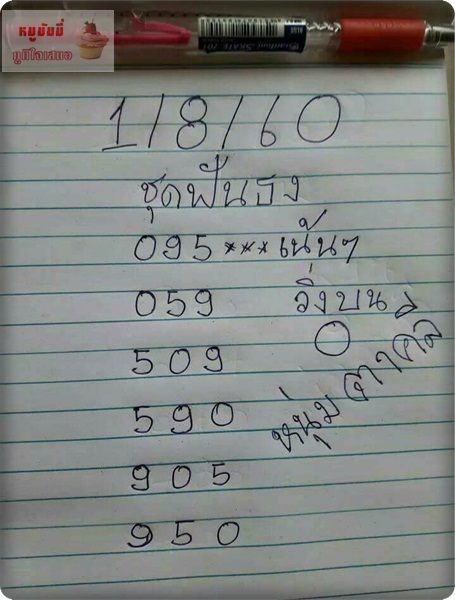 หมูมัมมี่
ภูมิใจเสนอ
1/8/60
ชุดฟันธง
095***เน้นๆ
059 วิ่งบน
509 0
590
905
950
หนุ่ม